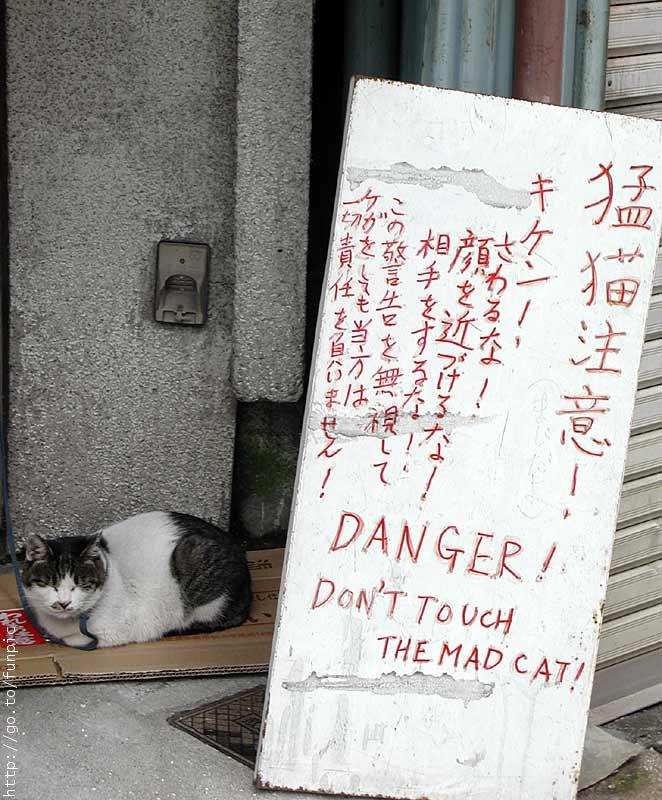 猛猫注意!
キケンー!
さわるな!
顔を近づけるな!
相手をするな!!
この警告を無視して
ケガをしても当方は
一切責任を負いません!
DANGER!
DON'T TOUCH
THE MAD CAT!
http://go.to/funpic